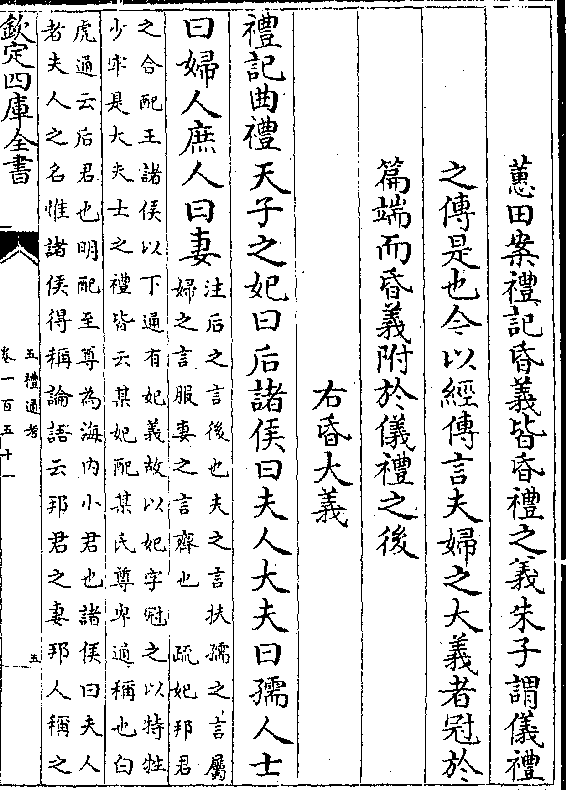 蕙田案禮記昏義皆昏禮之義朱子謂儀禮
之傳是也今以經傳言夫婦之大義者冠於
篇端而昏義附於儀禮之後
右昏大義
禮記曲禮天子之妃曰后諸侯曰夫人大夫曰孺人士
曰婦人庶人曰妻注后之言後也夫之言扶孺之言屬
婦之言服妻之言齊也 疏妃邦君
之合配王諸侯以下通有妃義故以妃字冠之以特牲
少牢是大夫士之禮皆云某妃配某氏尊卑通稱也白
虎通云后君也明配至尊為海内小君也諸侯曰夫人
者夫人之名惟諸侯得稱論語云邦君之妻邦人稱之
欽定四庫全書
五禮通考
卷一百五十一
五